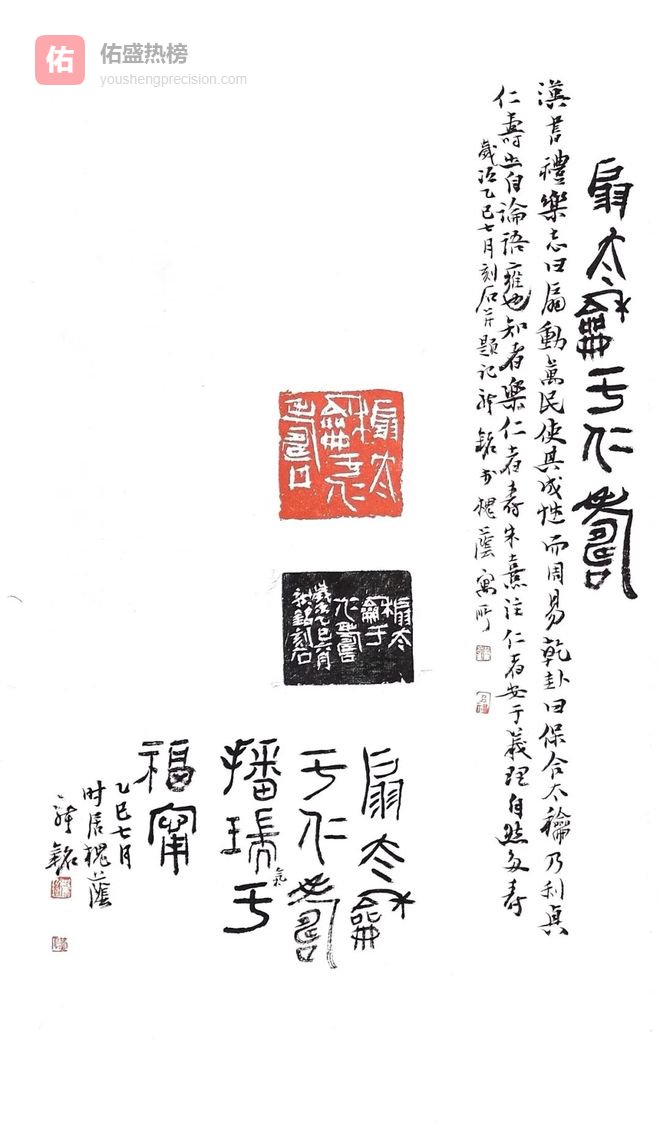 佑
佑盛热榜
youshengprecision.com
扇太龢于仁壽
漢書禮樂志曰扇動萬民使其成性而周易乾卦曰保合太龢乃利貞
仁壽出自論語雍也知者樂仁者壽朱熹注仁者安于義理自然多壽
歲次乙巳七月刻石并題記銘于槐蔭寓所
太
龢于仁
壽
太
龢于
仁壽
歲次乙巳六月
銘刻石
扇太龢
于仁壽
播瑞氣于
福甯
乙巳七月
时居槐蔭
銘